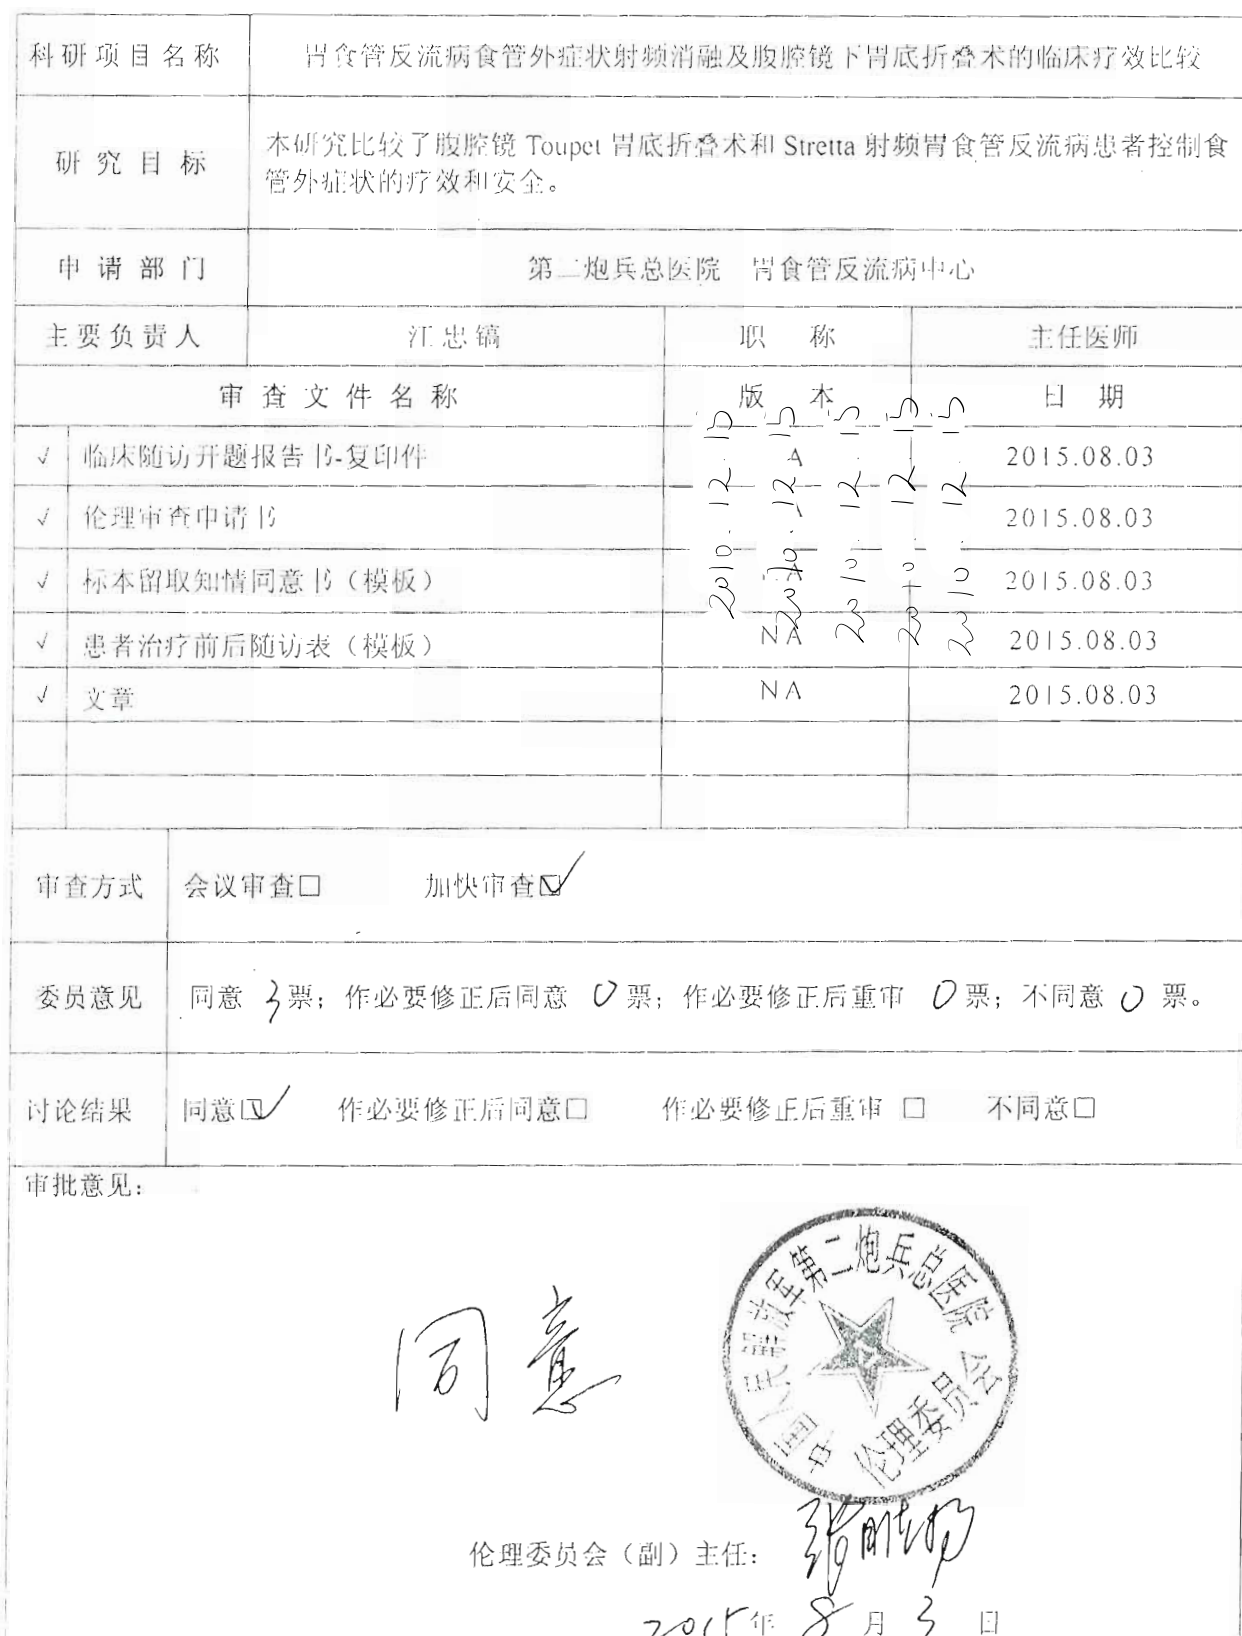 科研项目名称 胃食管反流病食管外症状射频消融及腹腔镜下胃底折叠术的临床疗效比较
研究目标 本研究比较了腹腔镜 Toupet 胃底折叠术和 Stretta 射频胃食管反流病患者控制食
管外症状的疗效和安全。
申请部门 第二炮兵总医院 胃食管反流病中心
主要负责人 江忠镐 职 称 主任医师
审查文件名称 版 本 日 期
√ 临床随访开题报告书-复印件 A 2015.08.03
√ 伦理审查申请书 2015.08.03
√ 标本留取知情同意书（模板） 2015.08.03
√ 患者治疗前后随访表（模板） NA 2015.08.03
√ 文章 NA 2015.08.03
2010.12.15
2010.12.15
2010.12.15
2010.12.15
2010.12.15
审查方式 会议审查□ 加快审查☑
委员意见 同意 3 票；作必要修正后同意 0 票；作必要修正后重审 0 票；不同意 0 票。
讨论结果 同意☑ 作必要修正后同意□ 作必要修正后重审 □ 不同意□
审批意见：
同意
中国人民解放军第二炮兵总医院
伦理委员会
伦理委员会（副）主任：
2015年 8 月 3 日